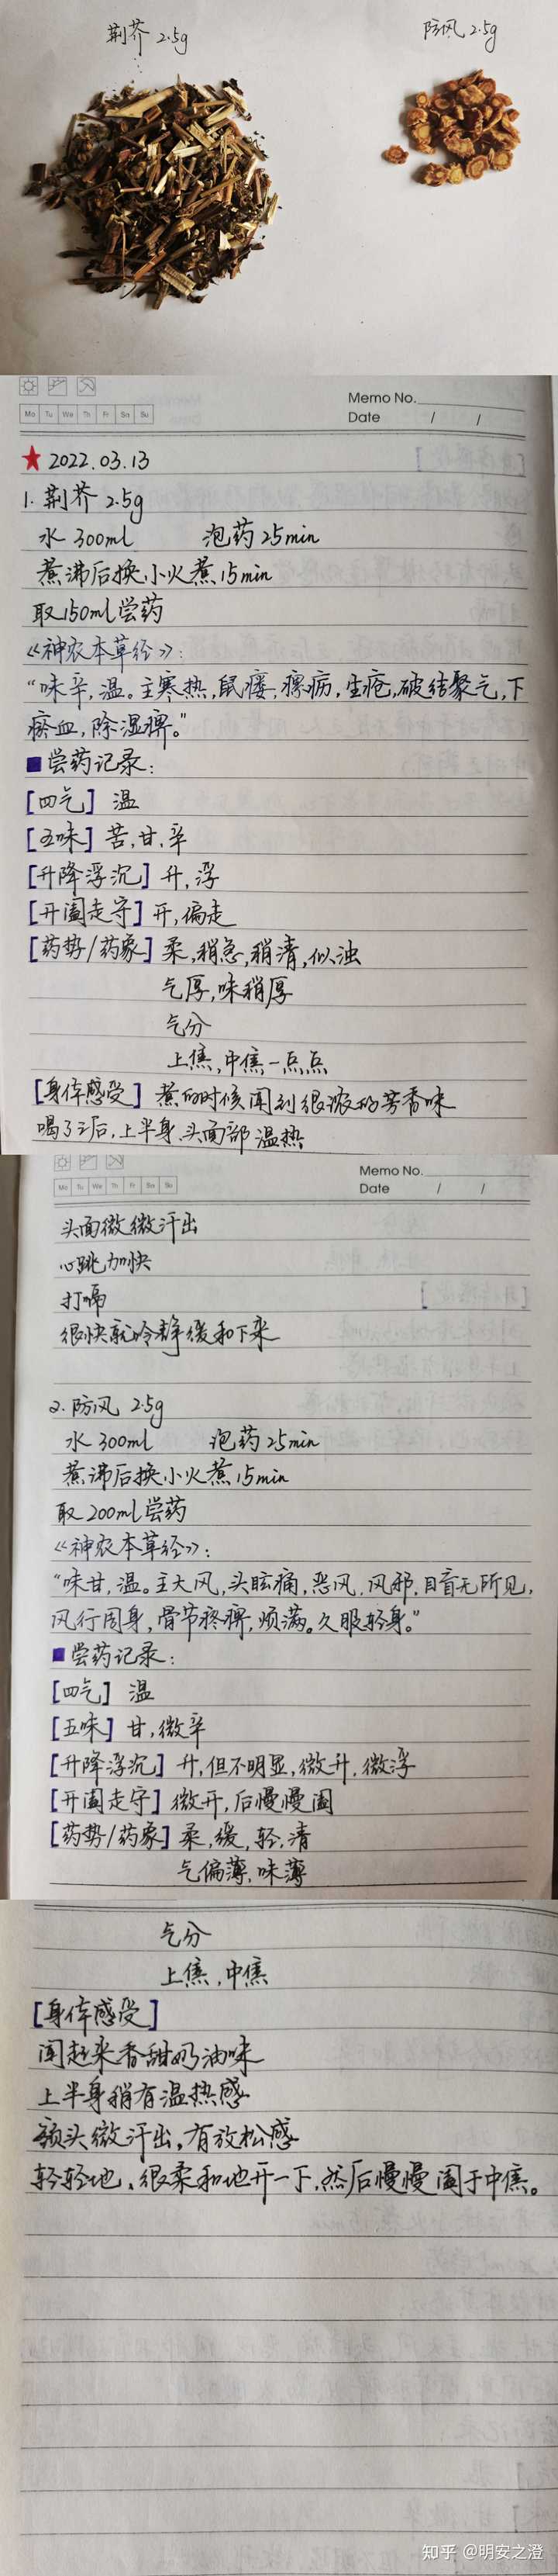 荆芥 2.5g
防风 2.5g
Memo No.
Mo Tu We Th Fr Sa Su
Date / /
★ 2022.03.13
1. 荆芥 2.5g
水 300ml 泡药 25min
煮沸后换小火煮 15min
取150ml尝药
《神农本草经》:
“味辛,温。主寒热,鼠瘘,瘰疬,生疮,破结聚气,下
瘀血,除湿痹。”
■ 尝药记录:
[四气] 温
[五味] 苦,甘,辛
[升降浮沉] 升,浮
[开阖走守] 开,偏走
[药势/药象] 柔,稍急,稍清,似浊
气厚,味稍厚
气分
上焦,中焦一点点
[身体感受] 煮的时候闻到很浓的芳香味
喝了之后,上半身、头面部温热
Memo No.
Mo Tu We Th Fr Sa Su
Date / /
头面微微汗出
心跳加快
打嗝
很快就冷静缓和下来
2. 防风 2.5g
水 300ml 泡药 25min
煮沸后换小火煮 15min
取 200ml 尝药
《神农本草经》:
“味甘,温。主大风,头眩痛,恶风,风邪,目盲无所见,
风行周身,骨节疼痹,烦满。久服轻身。”
■ 尝药记录:
[四气] 温
[五味] 甘,微辛
[升降浮沉] 升,但不明显,微升,微浮
[开阖走守] 微开,后慢慢阖
[药势/药象] 柔,缓,轻,清
气偏薄,味薄
气分
上焦,中焦
[身体感受]
闻起来香甜奶油味
上半身稍有温热感
额头微汗出,有放松感
轻轻地、很柔和地开一下,然后慢慢阖于中焦。
知乎 @明安之澄